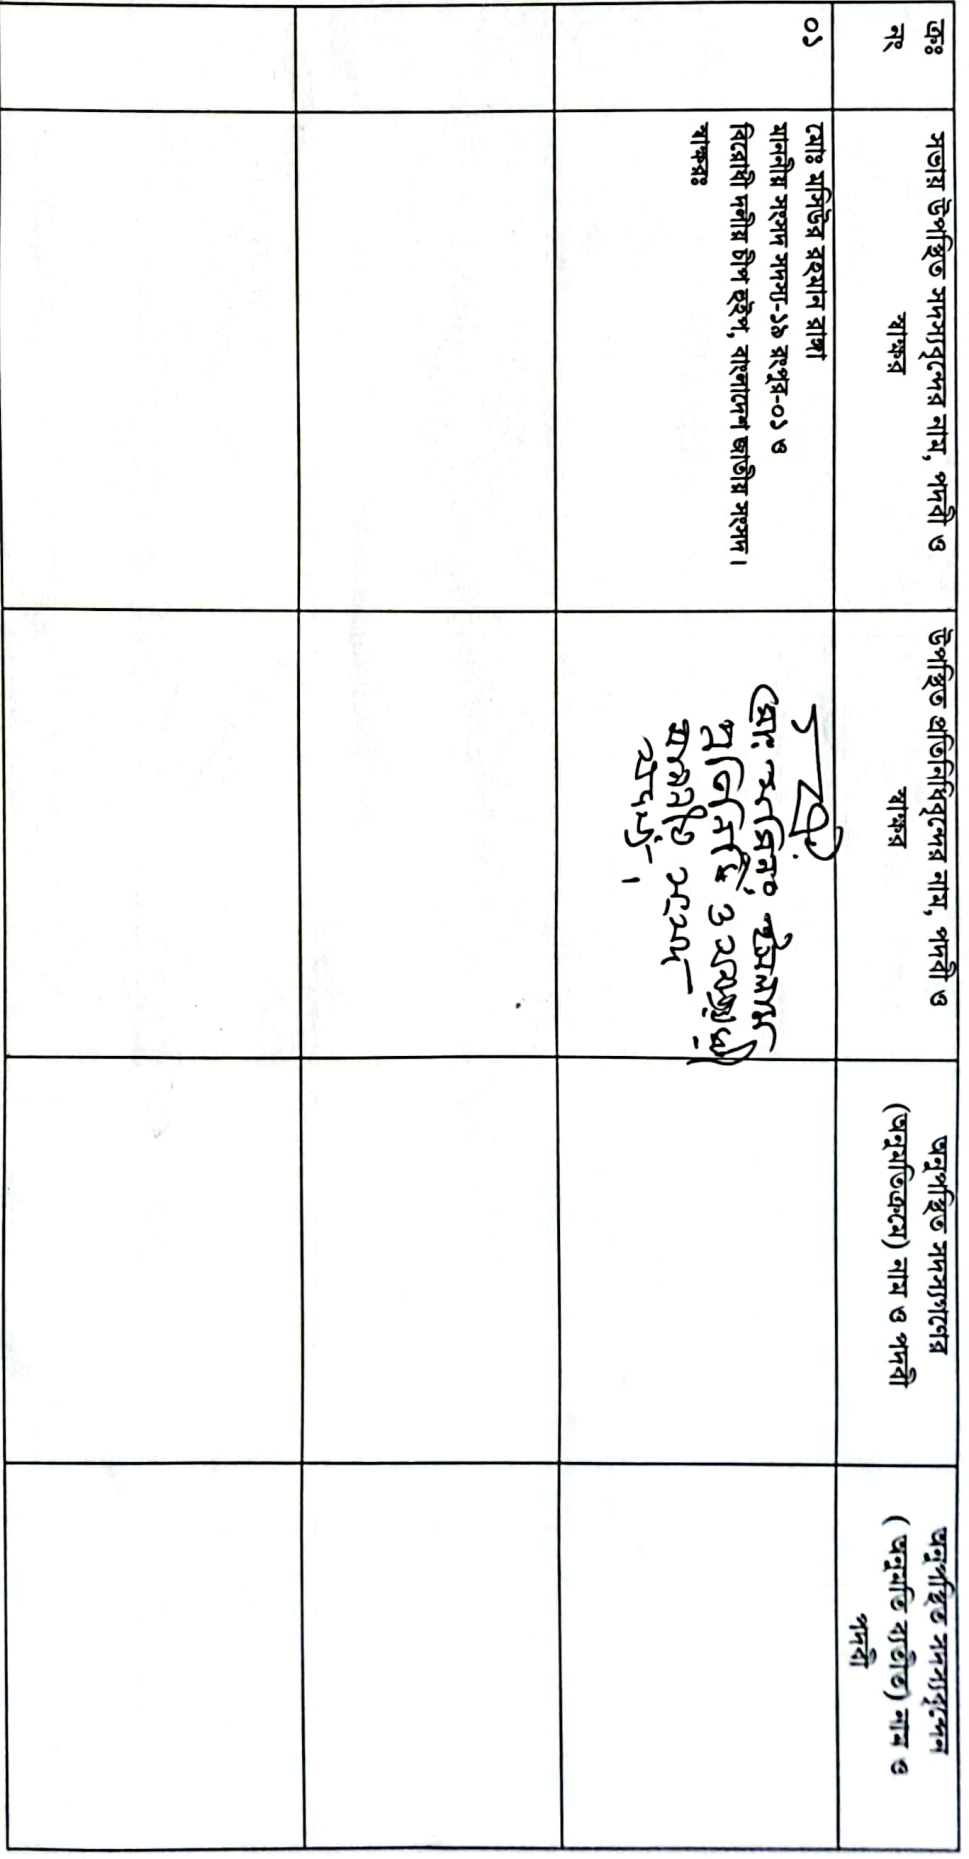 ক্রঃ
নং
সভায় উপস্থিত সদস্যবৃন্দের নাম, পদবী ও
স্বাক্ষর
উপস্থিত প্রতিনিধিবৃন্দের নাম, পদবী ও
স্বাক্ষর
অনুপস্থিত সদস্যগণের
(অনুমতিক্রমে) নাম ও পদবী
অনুপস্থিত সদস্যবৃন্দেন
( অনুমতি ব্যতীত) নাম ও
পদবী
০১
মোঃ মসিউর রহমান রাঙ্গা
মাননীয় সংসদ সদস্য-১৯ রংপুর-০১ ও
বিরোধী দলীয় চীপ হুইপ, বাংলাদেশ জাতীয় সংসদ।
স্বাক্ষরঃ
মোঃ ইসলাম
প্রতিনিধি ও
মাননীয় সংসদ
সদস্য।